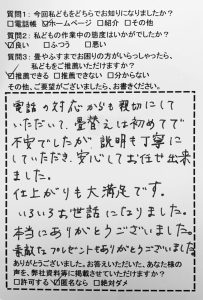 質問1：今回私どもをどちらでお知りになりましたか？
□電話帳 ☑ホームページ □紹介 □その他
質問2：私どもの作業中の態度はいかがでしたか？
☑良い □ふつう □悪い
質問3：畳やふすまでお困りの方がいらっしゃったら、
私どもをご推薦いただけますか？
☑推薦できる □推薦できない □分からない
その他、ご要望がございましたら、お書きください。
電話の対応からも親切にして
いただいて、畳替えは初めてで
不安でしたが説明も丁寧に
していただき、安心してお任せ出来
ました。
仕上がりも大満足です。
いろいろお世話になりました。
本当にありがとうございました。
素敵なプレゼントもありがとうございました。
ありがとうございました。お答えいただいた、あなた様の
声を、弊社資料等に掲載させていただけますか？
□許可する ☑匿名なら □絶対ダメ